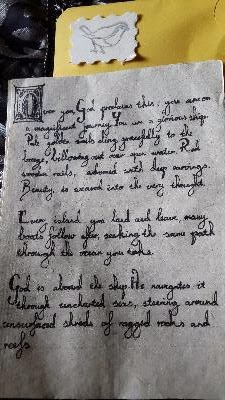 Over you, God proclaims this: you are on
a magnificent journey. You are a glorious ship.
Pale golden sails cling gracefully to the
breeze, billowing out over open water. Rich
wooden rails, adorned with deep carvings.
Beauty is woven into the very thought.
Every island you land and leave, many
boats follow after, seeking the same path
through the ocean you take.
God is aboard the ship. He navigates it
through uncharted seas, steering around
unsurfaced shreds of ragged rocks and
reefs.